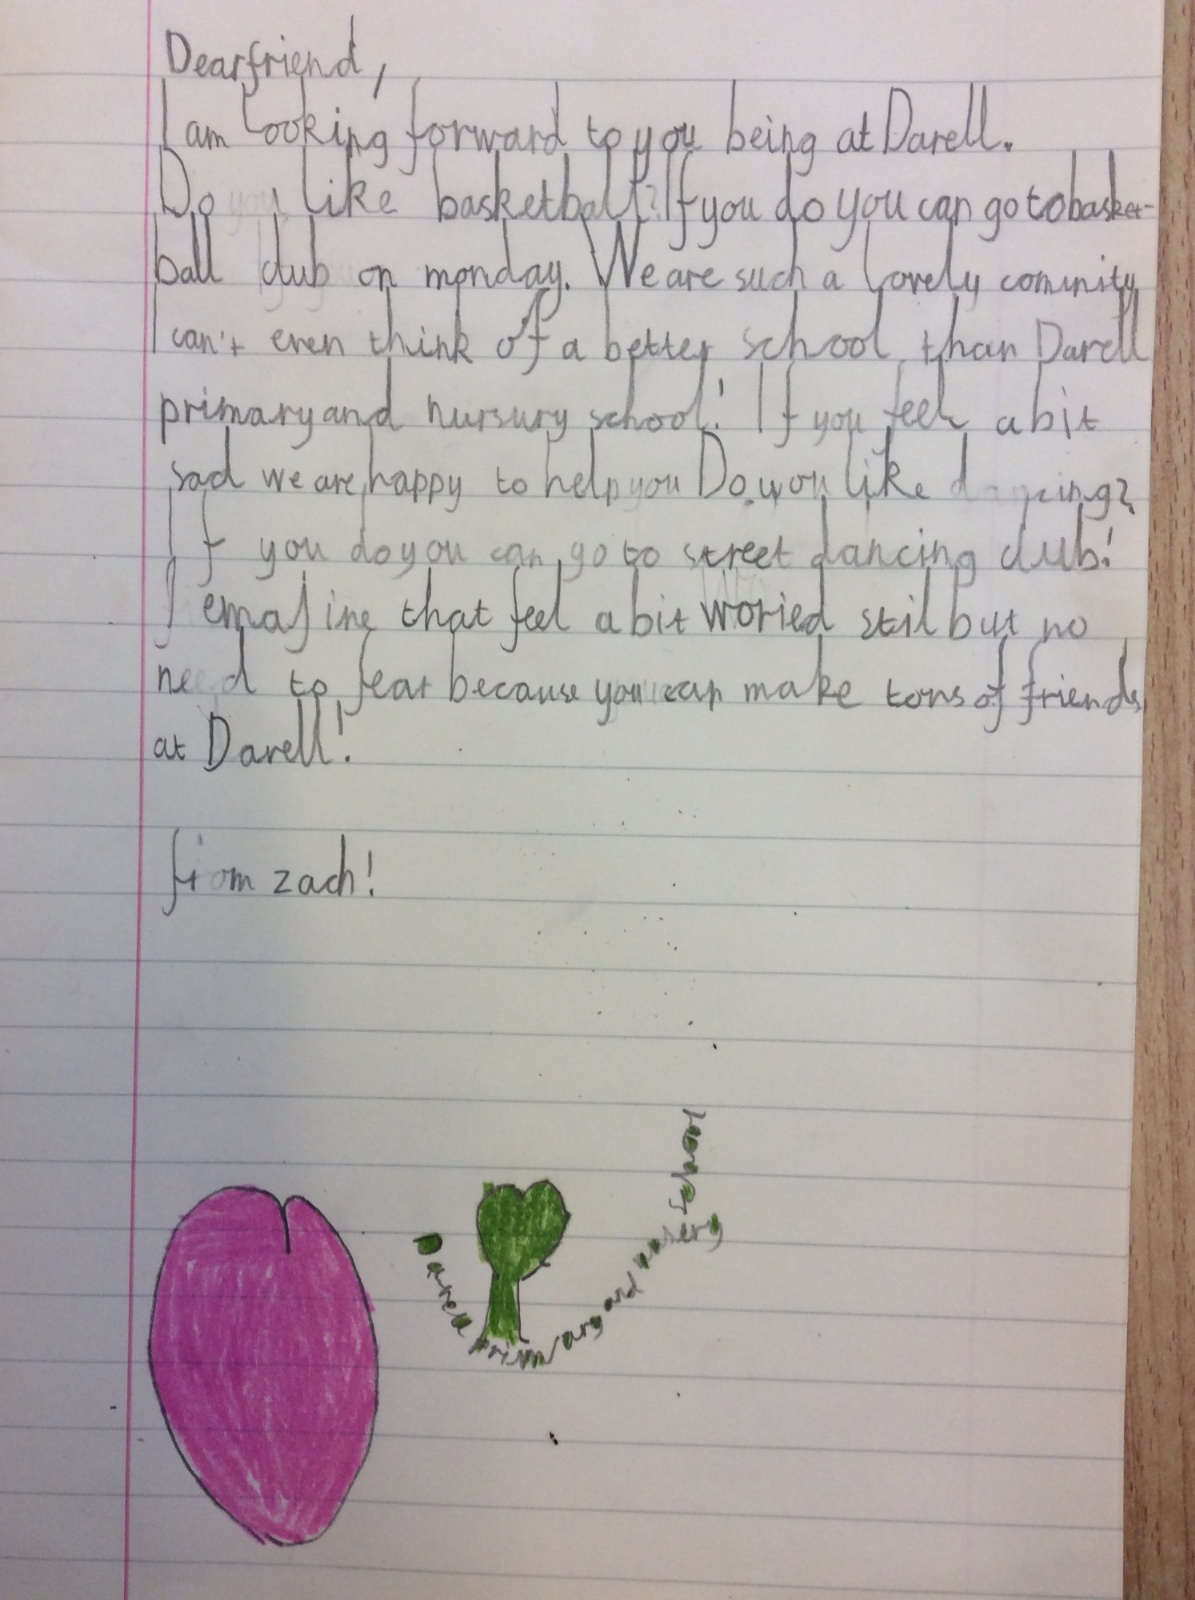 Dear friend,
I am looking forward to you being at Darell.
Do you like basketball? If you do you can go to basket-
ball club on monday. We are such a lovely cominity
I can't even think of a better school than Darell
primary and nursury school! If you feel a bit
sad we are happy to help you Do you like dancing?
If you do you can go to street dancing club!
I emajine that feel a bit woried stil but no
need to fear because you can make tons of friends
at Darell!
from zach!
Darell primary and nusery school